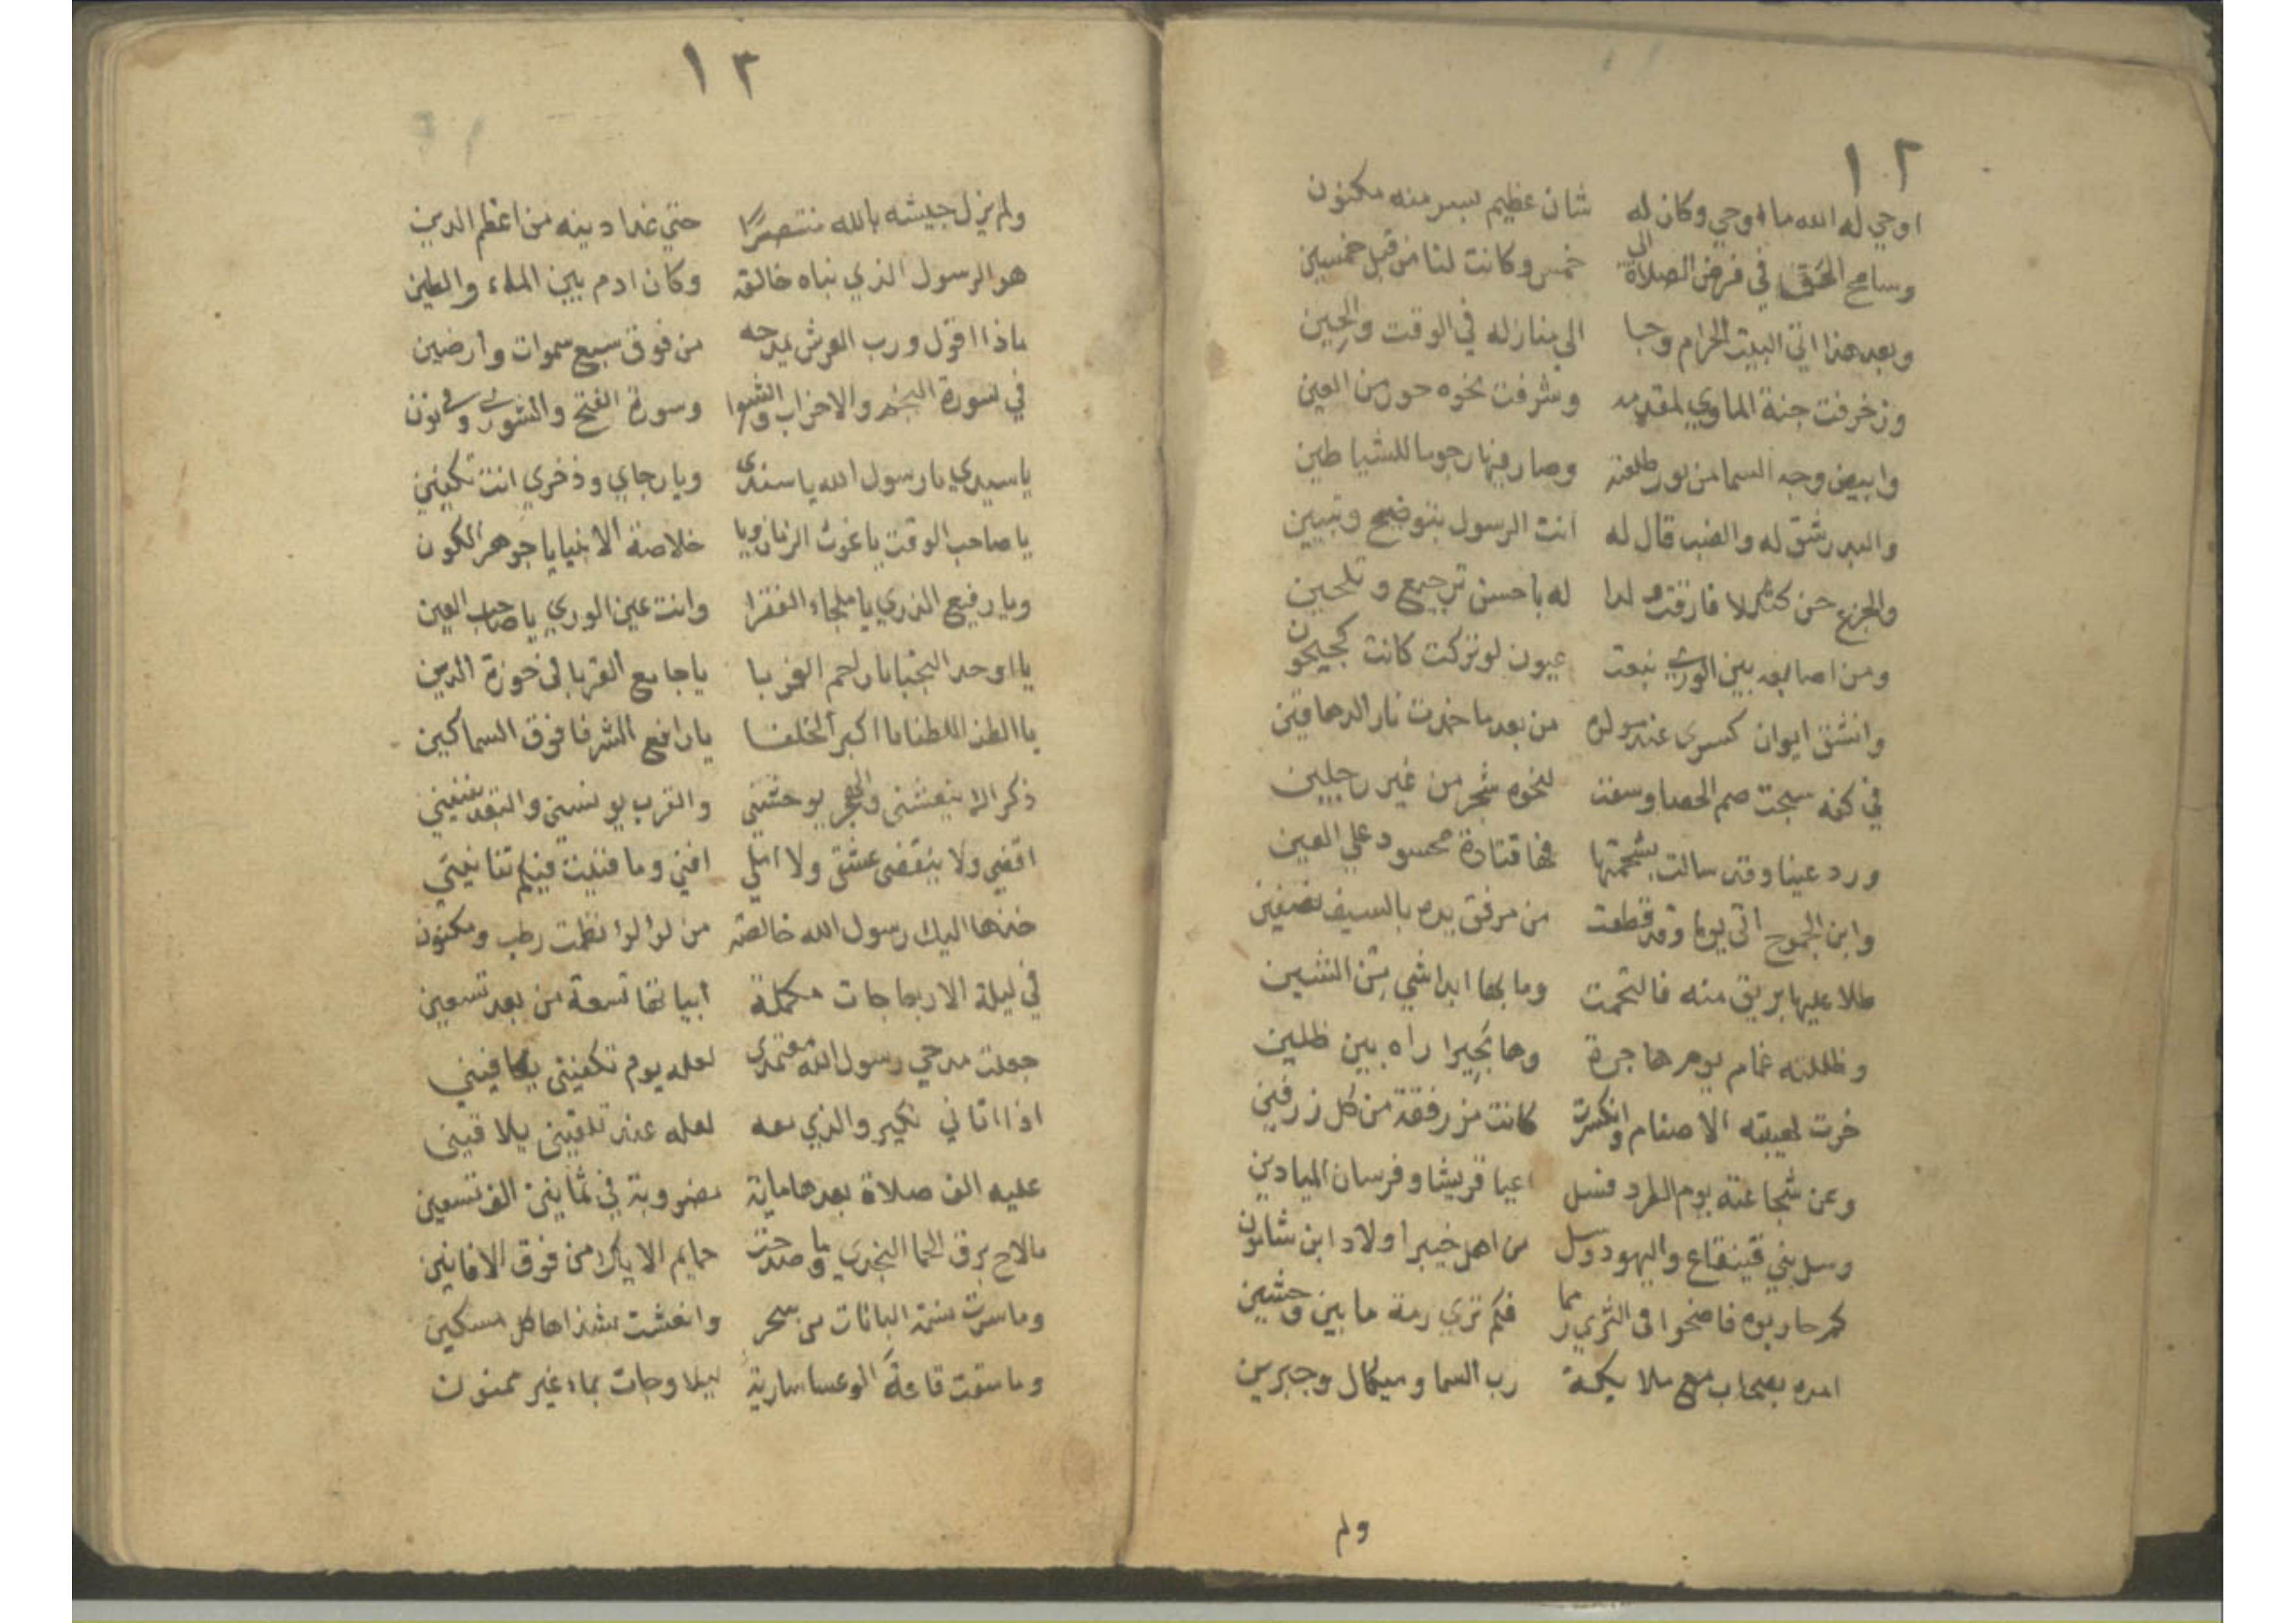 ١٢
اوحي له الله ما اوحي وكان له شان عظيم بسر منه مكنون
وسامح الحق في فرض الصلاة الى خمس وكانت لنا من قبل خمسين
وبعد هذا اتى البيت الحرام وجا الي منازله في الوقت والحين
وزخرفت جنة الماوي لمقدمه وشرفت نخوه حور من العين
وابيض وجه السما من نور طلعته وصار فيها رجوما للشياطين
والبدر شق له والضب قال له انت الرسول بتوضيح وتبيين
والجزع حن كثكلا فارقت ولدا له باحسن ترجيع وتلحين
ومن اصابعه بين الورى نبعت عيون لو تركت كانت كجيحون
وانشق ايوان كسرى عند مولده من بعد ما خمدت نار الدهاقين
في كفه سبحت صم الحصا وسعت لنحوه شجر من غير رجلين
ورد عينا وقد سالت بشحمتها قتادة محسود علي العين
وابن الجموح اتى يوما وقد قطعت من مرفق يده بالسيف نصفين
طلا عليها بريق منه فالتحمت وما بها ابدا شي من الشين
وظللته غمام يوم هاجرة وها بحيرا راه بين ظلين
خرت لهيبته الاصنام وانكسرت كانت مزرفقة من كل زرفين
وعن شجاعته يوم الطرد فسل اعيا قريشا وفرسان الميادين
وسل بني قينقاع واليهود وسل من اهل خيبر اولاد ابن شانون
كم حاربوه فاضحوا في الثري رمما فكم تري رمة ما بين وحشين
امده بصحاب مع ملايكة رب السما وميكال وجبرين
ولم
١٣
ولم يزل جيشه بالله منتصرا حتي غدا دينه من اعظم الدين
هو الرسول الذي نباه خالقه وكان ادم بين الماء والطين
ماذا اقول ورب العرش يمدحه من فوق سبع سموات وارضين
في سورة النجم والاحزاب والشعرا وسورة الفتح والشورى وفي نون
يا سيدي يا رسول الله يا سندى ويا رجاي وذخري انت تكفيني
يا صاحب الوقت يا غوث الزمان ويا خلاصة الانبيا يا جوهر الكون
ويا رفيع الذري يا ملجاء الفقرا وانت عين الوري يا صاحب العين
يا اوحد النجبا يا راحم الغربا يا جامع القربا في حوزة الدين
يا الطف اللطفا يا اكبر الخلفا يا رافع الشرفا فوق السماكين
ذكراك ينعشنى والهجر يوحشني والقرب يونسني والبعد يفنيني
اقضي ولا ينقضى عشقى ولا املي افني وما فنيت فيكم تفانيني
خذها اليك رسول الله خالصة من لولوا نظمت رطب ومكنون
في ليلة الاربعا جات مكملة ابياتها تسعة من بعد تسعين
جعلت مدحي رسول الله معتمدى لعله يوم تكفيني يكافيني
اذا اتاني نكير والذي معه لعله عند تلقيني يلاقيني
عليه الف صلاة بعدها ماية مضروبة في ثمانين الف تسعين
ما لاح برق الحما النجدي وما صدحت حمايم الايك من فوق الافانين
وما سرت نسمة البانات من سحر وانعشت بشذاها كل مسكين
وما سقت قاعة الوعسا سارية ليلا وجات بماء غير ممنون